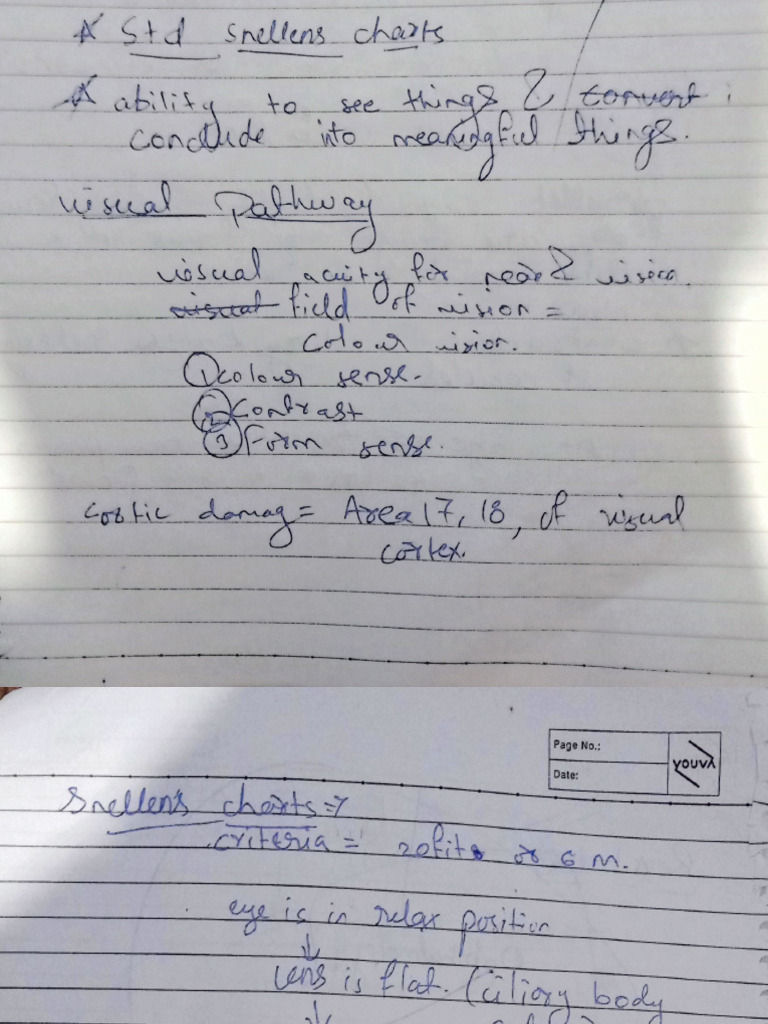 * Std Snellens charts
* ability to see things & convert
conclude into meaningful things.
Visual Pathway
visual acuity for near & vision.
visual field of vision =
Colour vision.
① colour sense.
② Contrast
③ Form sense.
cortic damag = Area 17, 18, of visual
cortex.
Page No.:
Date:
YOUVA
Snellen's charts =>
criteria = 20fits or 6 M.
eye is in relax position
↓
lens is flat. (ciliory body
↓